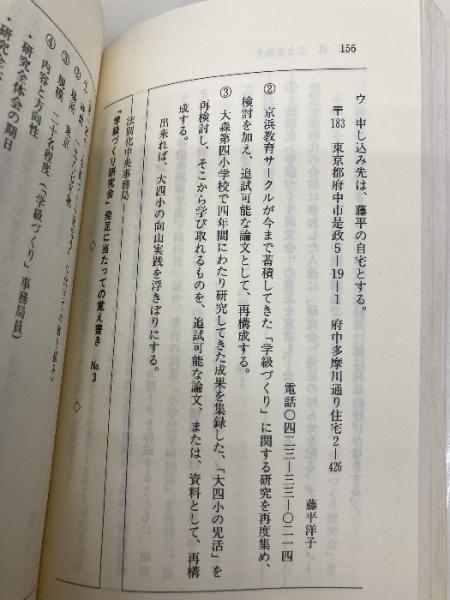 156
ウ 申し込み先は、藤平の自宅とする。
〒183 東京都府中市是政5―19―1 府中多摩川通り住宅2―426
藤平洋子
電話〇四二三―三三―〇二一四
② 京浜教育サークルが今まで蓄積してきた「学級づくり」に関する研究を再度集め、
検討を加え、追試可能な論文として、再構成する。
③ 大森第四小学校で四年間にわたり研究してきた成果を集録した、「大四小の児活」を
再検討し、そこから学び取れるものを、追試可能な論文、または、資料として、再構
成する。
出来れば、大四小の向山実践を浮きぼりにする。
法則化中央事務局
「学級づくり研究会」発足に当たっての覚え書き No.3
◇ ◇
② 場所 東京
③ 規模 二十名程度(「学級づくり」事務局員)
④ 内容と方向性
・研究全体会の期日